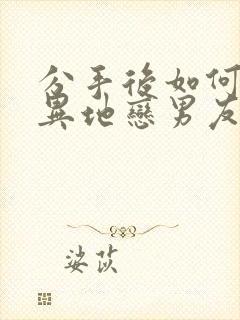 分手後如何
異地戀男友
娑茨